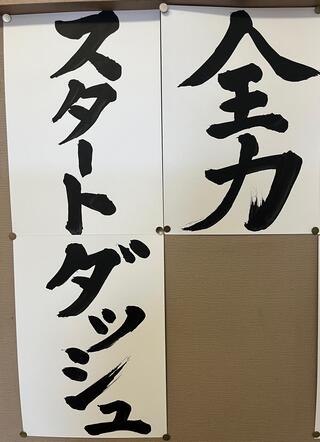 全力
スタートダッシュ